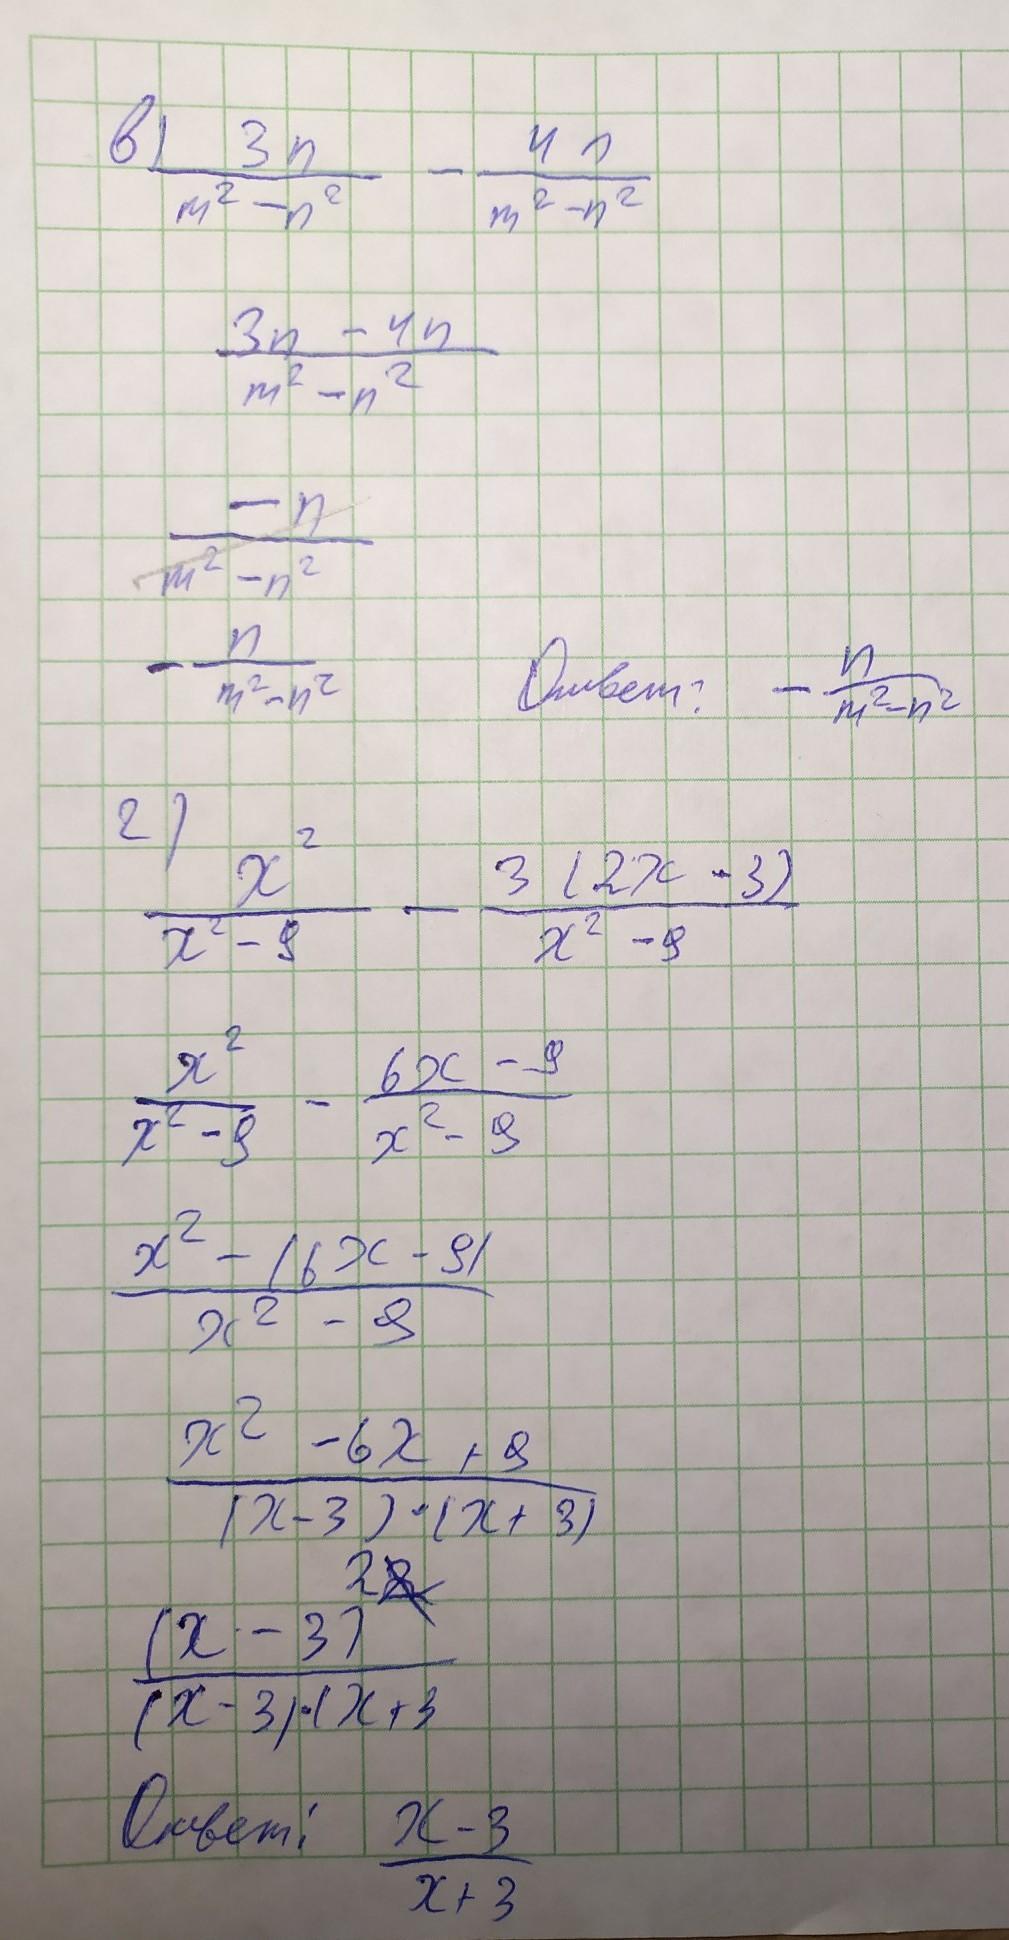 в) 3n / (m² - n²) - 4n / (m² - n²)
3n - 4n / (m² - n²)
- n / (m² - n²)
- n / (m² - n²) Ответ: - n / (m² - n²)
г)
x² / (x² - 9) - 3(2x - 3) / (x² - 9)
x² / (x² - 9) - 6x - 9 / (x² - 9)
x² - (6x - 9) / (x² - 9)
x² - 6x + 9 / (x - 3)·(x + 3)
(x - 3)² / (x - 3)·(x + 3
Ответ: x - 3 / x + 3